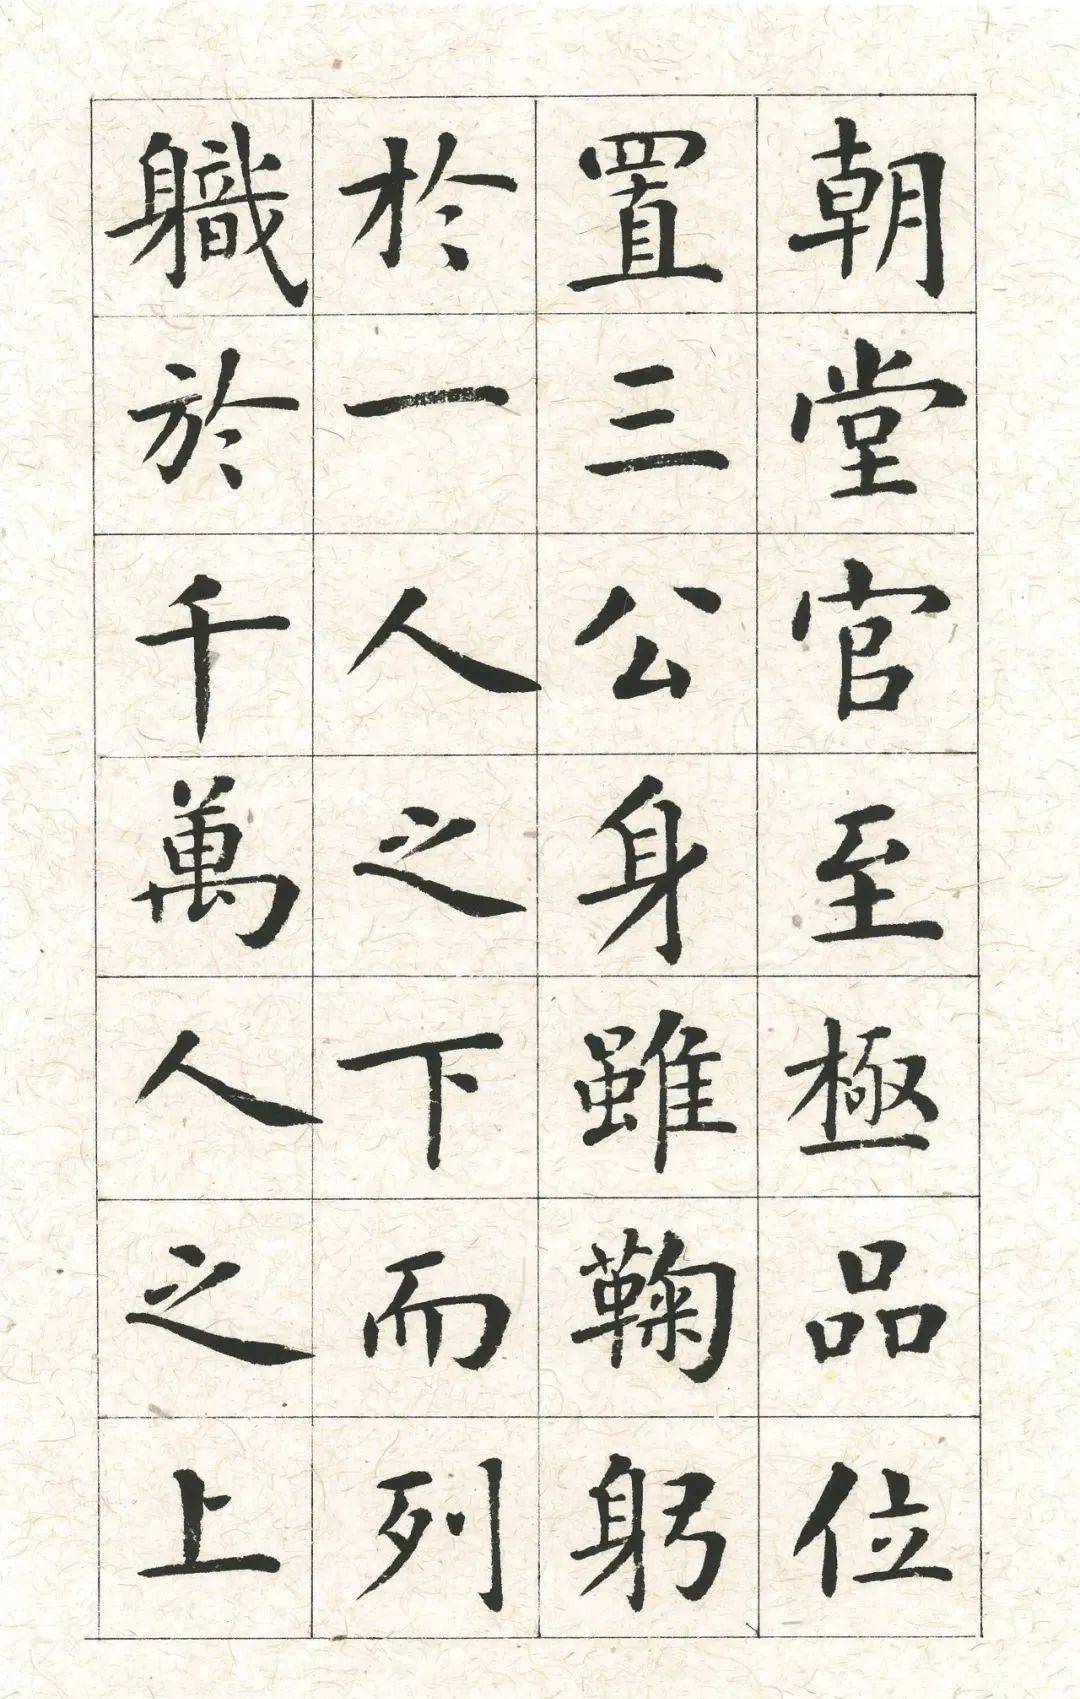 朝堂官至極品位
置三公身雖鞠躬
於一人之下而列
軄於千萬人之上